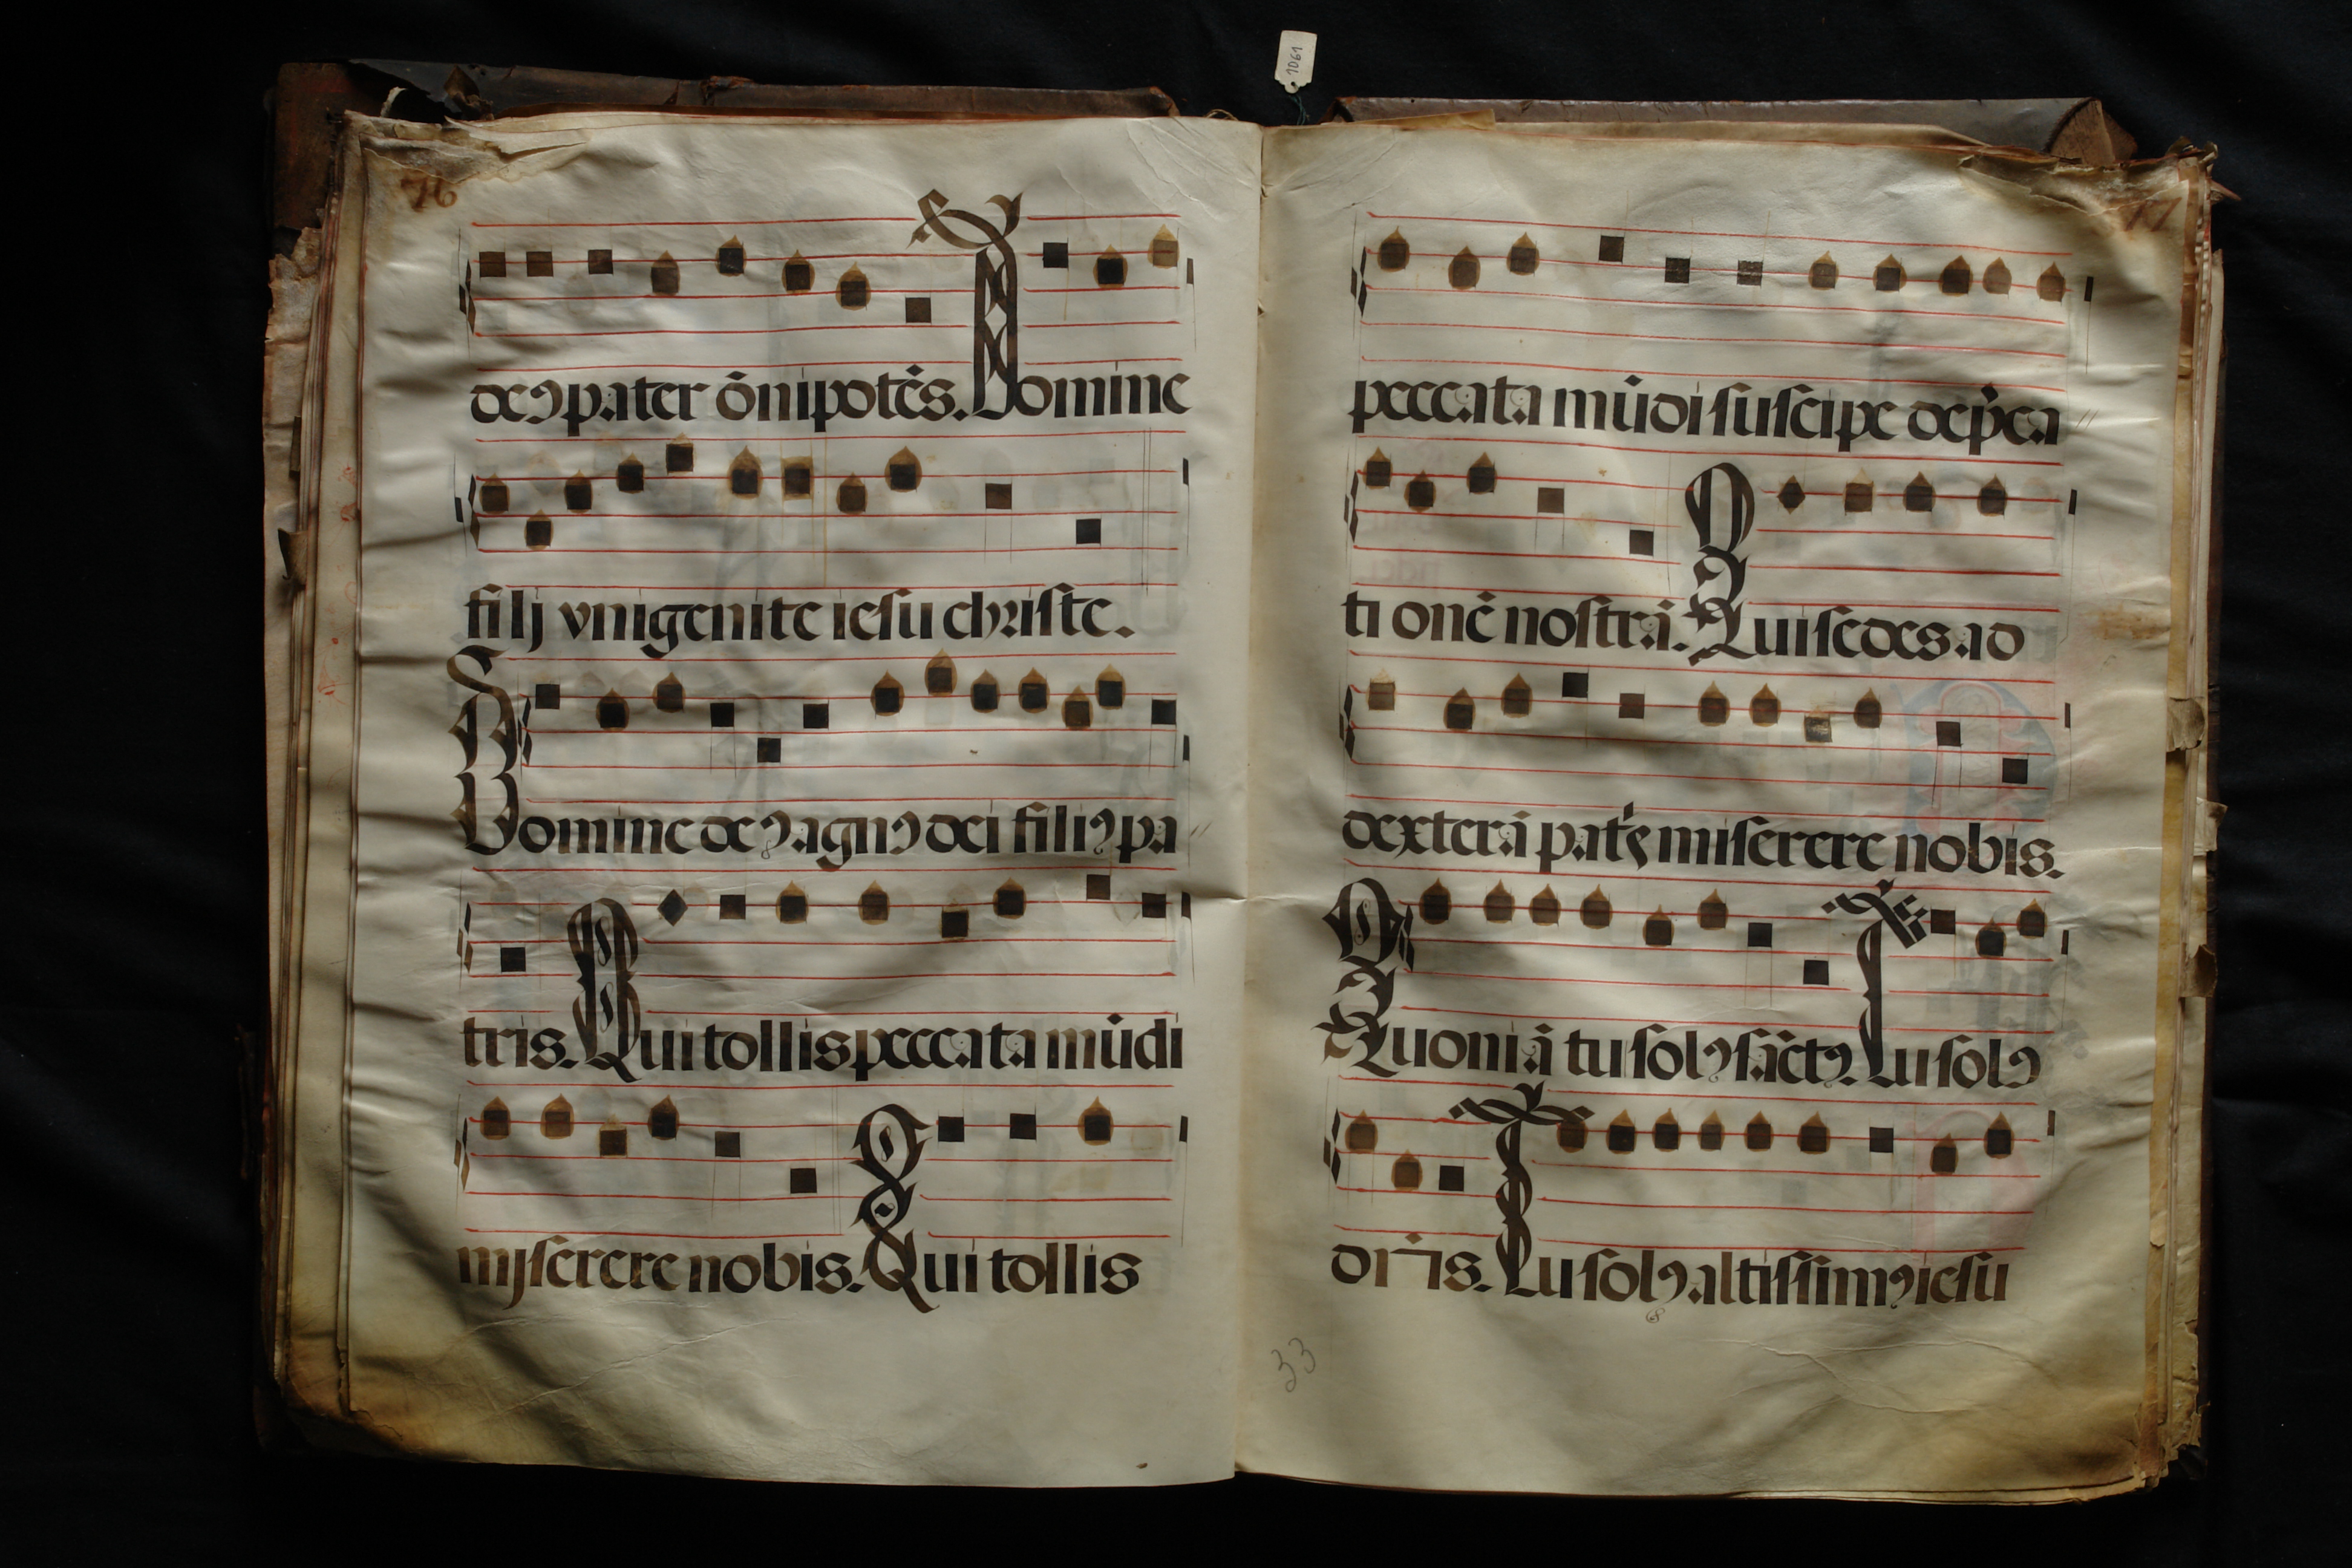 1061
76
deꝯ pater õnipotẽs. Domine
filij vnigenite iesu christe.
Domine deꝯ agnꝯ dei filiꝯ pa
tris. Qui tollis peccata mũdi
miserere nobis. Qui tollis
77
peccata mũdi suscipe dep̃ca
tionẽ nostrã. Qui sedes ad
dexterã patrs miserere nobis.
Quoniã tu solꝯ sãctꝯ. Tu solꝯ
dñs. Tu solꝯ altissimꝯ iesu
33